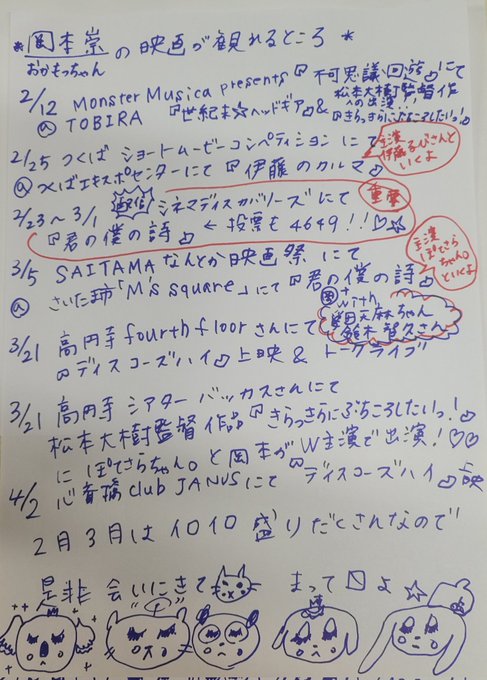 *岡本崇の映画が観れるところ*
おかもっちゃん
2/12 Monster Musica presents『不可思議回遊』にて
@TOBIRA 『世紀末☆ヘッドギア』&
松本大樹監督作
への出演!!
『きらっきらにぶちころしたいっ!』
2/25 つくばショートムービーコンペティションにて
@つくばエキスポセンターにて『伊藤のカルマ』
主演
伊藤るびさんと
いくよ
2/23〜3/1 配信 シネマディスカバリーズにて
重要
『君の僕の詩』 ← 投票も4649!!♡☆
3/5 SAITAMAなんとか映画祭にて
@さいたま市「M's square」にて『君の僕の詩』
主演
ぽてさら
ちゃん。
といくよ
3/21 高円寺fourth floorさんにて
『ディスコーズハイ』上映&トークライブ
岡+
with
田中麻ちゃん
鈴木智久さん
3/21 高円寺シアターバッカスさんにて
松本大樹監督作品『きらっきらにぶちころしたいっ!』
にぽてさらちゃん。と岡本がW主演で出演!♡♡
4/2 心斎橋club JANUSにて『ディスコーズハイ』上映
2月3月はイロイロ盛りだくさんなので
是非会いにきて
まって口よ☆